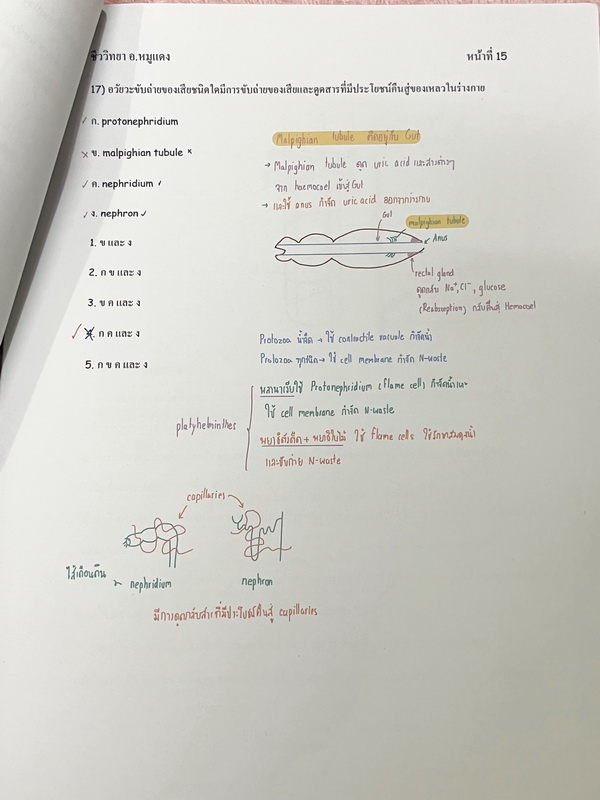 ชีววิทยา อ.หมูแดง
หน้าที่ 15
17) อวัยวะขับถ่ายของเสียชนิดใดมีการขับถ่ายของเสียและดูดสารที่มีประโยชน์คืนสู่ของเหลวในร่างกาย
✓ ก. protonephridium
× ข. malpighian tubule ×
✓ ค. nephridium ✓
✓ ง. nephron ✓
1. ข และ ง
2. ก ข และ ง
3. ข ค และ ง
✓ 4. ก ค และ ง
5. ก ข ค และ ง
Malpighian tubule ติดอยู่กับ Gut
→ Malpighian tubule ดูด uric acid และสารต่างๆ
จาก haemocoel เข้าสู่ Gut
→ และใช้ anus กำจัด uric acid ออกจากร่างกาย
Gut
malpighian tubule
Anus
rectal gland
ดูดกลับ Na⁺, Cl⁻, glucose
(Reabsorption) กลับคืนสู่ Hemocoel
Protozoa น้ำจืด → ใช้ contractile vacuole กำจัดน้ำ
Protozoa ทุกชนิด → ใช้ cell membrane กำจัด N-waste
platyhelminthes
พลานาเรียใช้ Protonephridium (flame cell) กำจัดน้ำและ
ใช้ cell membrane กำจัด N-waste
พยาธิตัวตืด + พยาธิใบไม้ ใช้ flame cells ใช้รักษาสมดุลน้ำ
และขับถ่าย N-waste
capillaries
ไส้เดือนดิน
nephridium
nephron
มีการดูดกลับสารที่มีประโยชน์คืนสู่ capillaries